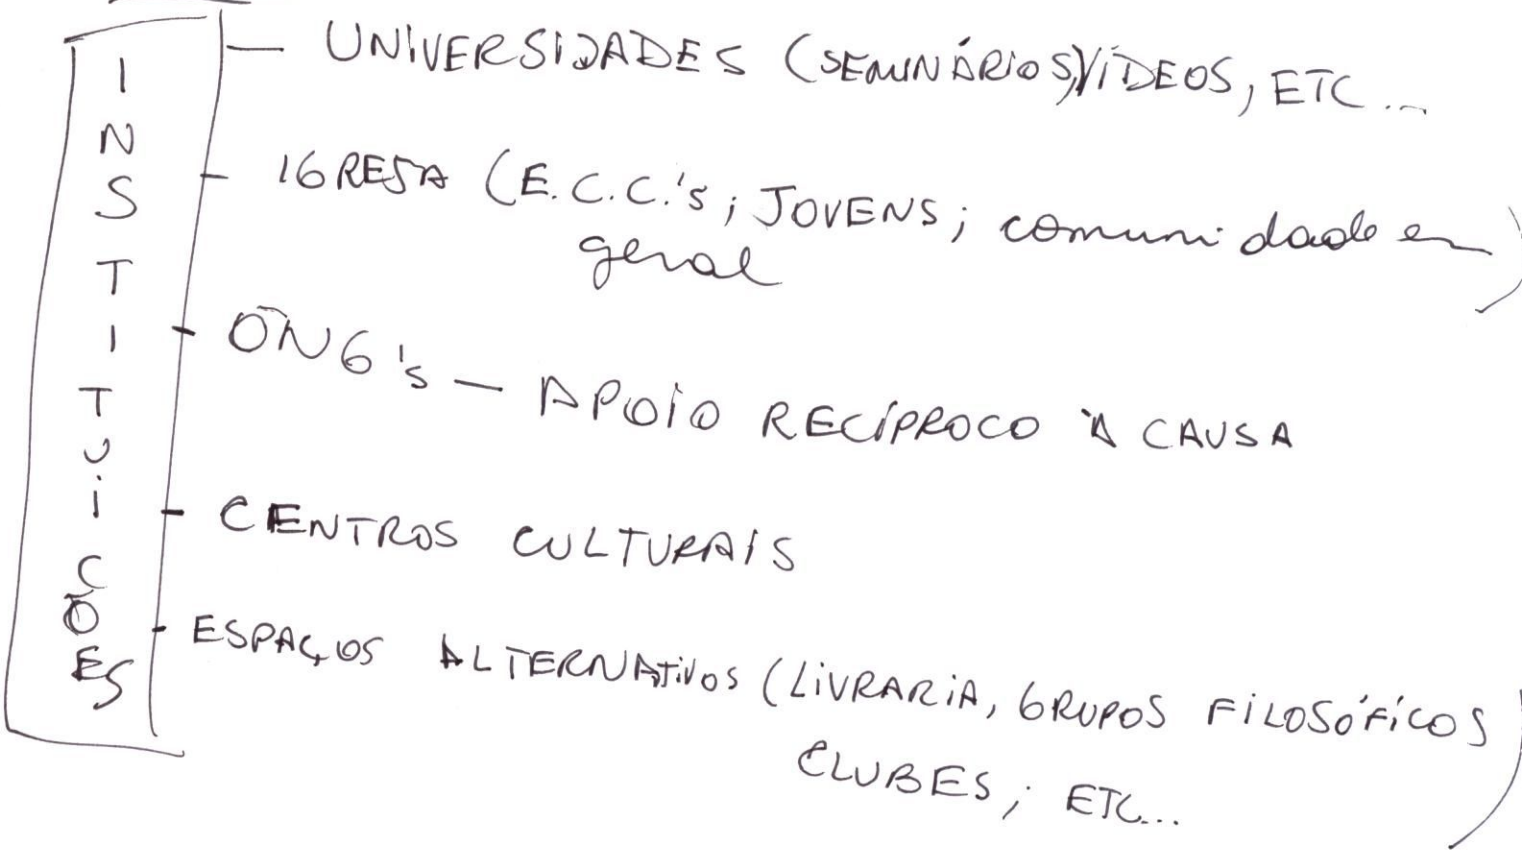 INSTITUIÇÕES
— UNIVERSIDADES (SEMINÁRIOS, VÍDEOS, ETC...
- IGREJA (E.C.C.'s; JOVENS; comunidade em
geral)
- ONG's — APOIO RECÍPROCO À CAUSA
- CENTROS CULTURAIS
- ESPAÇOS ALTERNATIVOS (LIVRARIA, GRUPOS FILOSÓFICOS
CLUBES; ETC...)